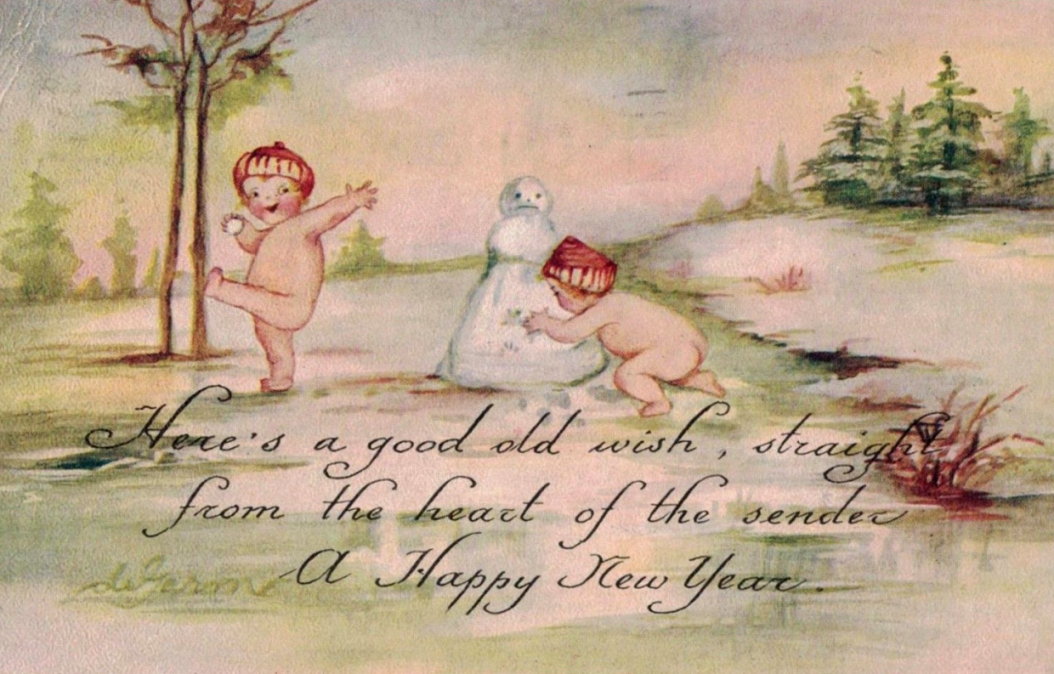 Here's a good old wish, straight
from the heart of the sender
A Happy New Year.